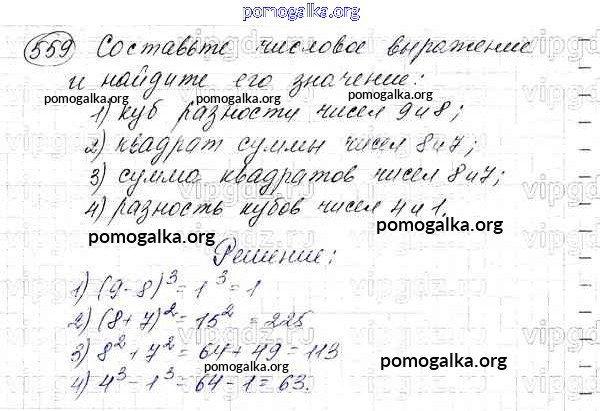 pomogalka.org
559 Составьте числовое выражение
и найдите его значение:
pomogalka.org pomogalka.org
1) куб разности чисел 9 и 8;
2) квадрат суммы чисел 8 и 7;
3) сумма квадратов чисел 8 и 7;
4) разность кубов чисел 4 и 1.
pomogalka.org pomogalka.org
Решение:
1) (9-8)³ = 1³ = 1
2) (8+7)² = 15² = 225
3) 8² + 7² = 64 + 49 = 113
4) 4³ - 1³ = 64 - 1 = 63.
pomogalka.org
pomogalka.org